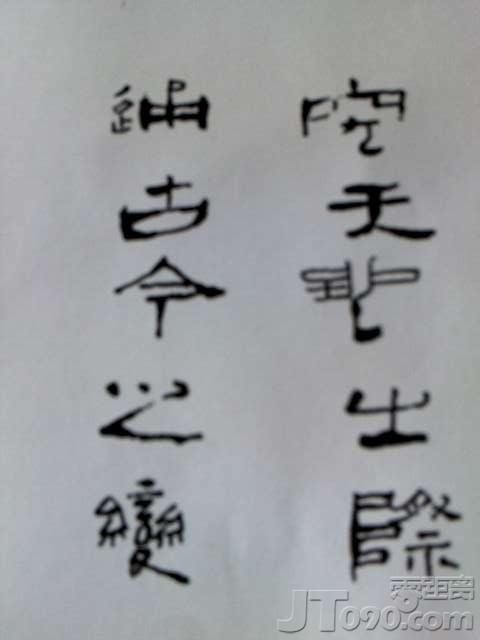 究天之際
通古今之變
JT090.com